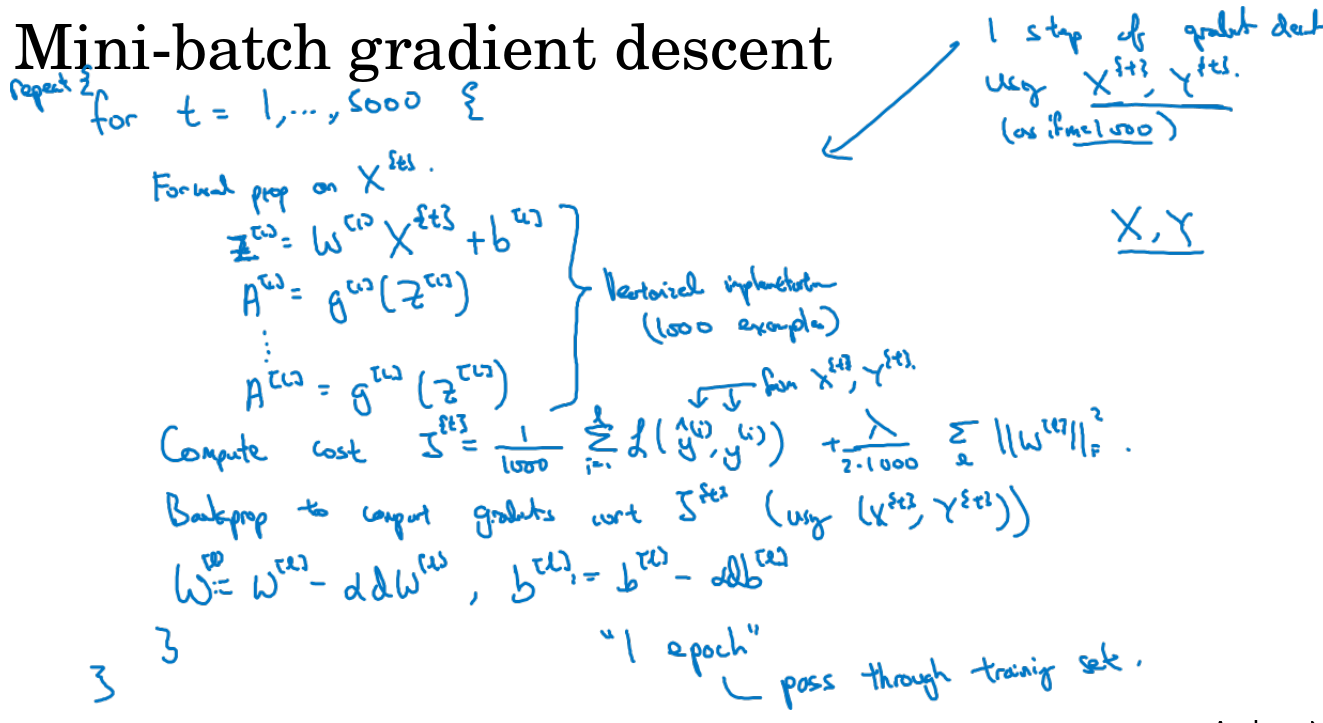 Mini-batch gradient descent
1 step of gradient descent
using X^{t}, Y^{t}.
(as if m=1000)
repeat {
for t = 1,...,5000 {
X, Y
Forward prop on X^{t}.
Z^[1] = W^[1] X^{t} + b^[1]
A^[1] = g^[1](Z^[1])
⋮
A^[L] = g^[L](Z^[L])
Vectorized implementation
(1000 examples)
from X^{t}, Y^{t}.
Compute cost J^{t} = 1/1000 Σ_{i=1}^{l} L(ŷ^(i), y^(i)) + λ/(2·1000) Σ_l ||W^[l]||_F^2.
Backprop to compute gradients wrt J^{t} (using (X^{t}, Y^{t}))
W^[l] := W^[l] - αdW^[l], b^[l] := b^[l] - αdb^[l]
}
}
"1 epoch"
pass through training set.